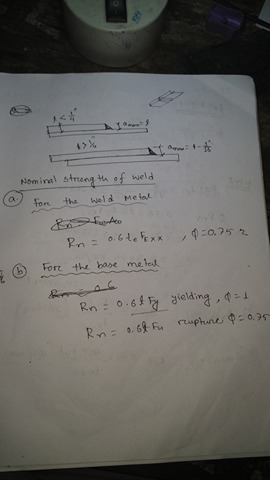 t < 1/4" a max = t
t > 1/4" a max = t - 1/16"
Nominal strength of weld
(a) Forc the weld Metal
Rn = 0.6 te FExx , Φ=0.75
(b) Forc the base metal
Rn = 0.6
Rn = 0.6t Fy yielding , Φ=1
Rn = 0.6t Fu rcupture Φ=0.75